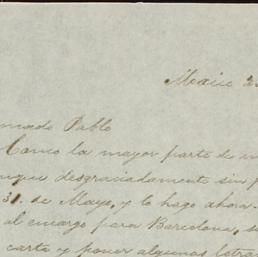 Mexico 2
mado Pablo
Como la mayor parte de m
nque desgraciadamente sin f
31. de Mayo, y lo hago ahora.
al encargo para Barcelona, s
carta y poner algunas letra